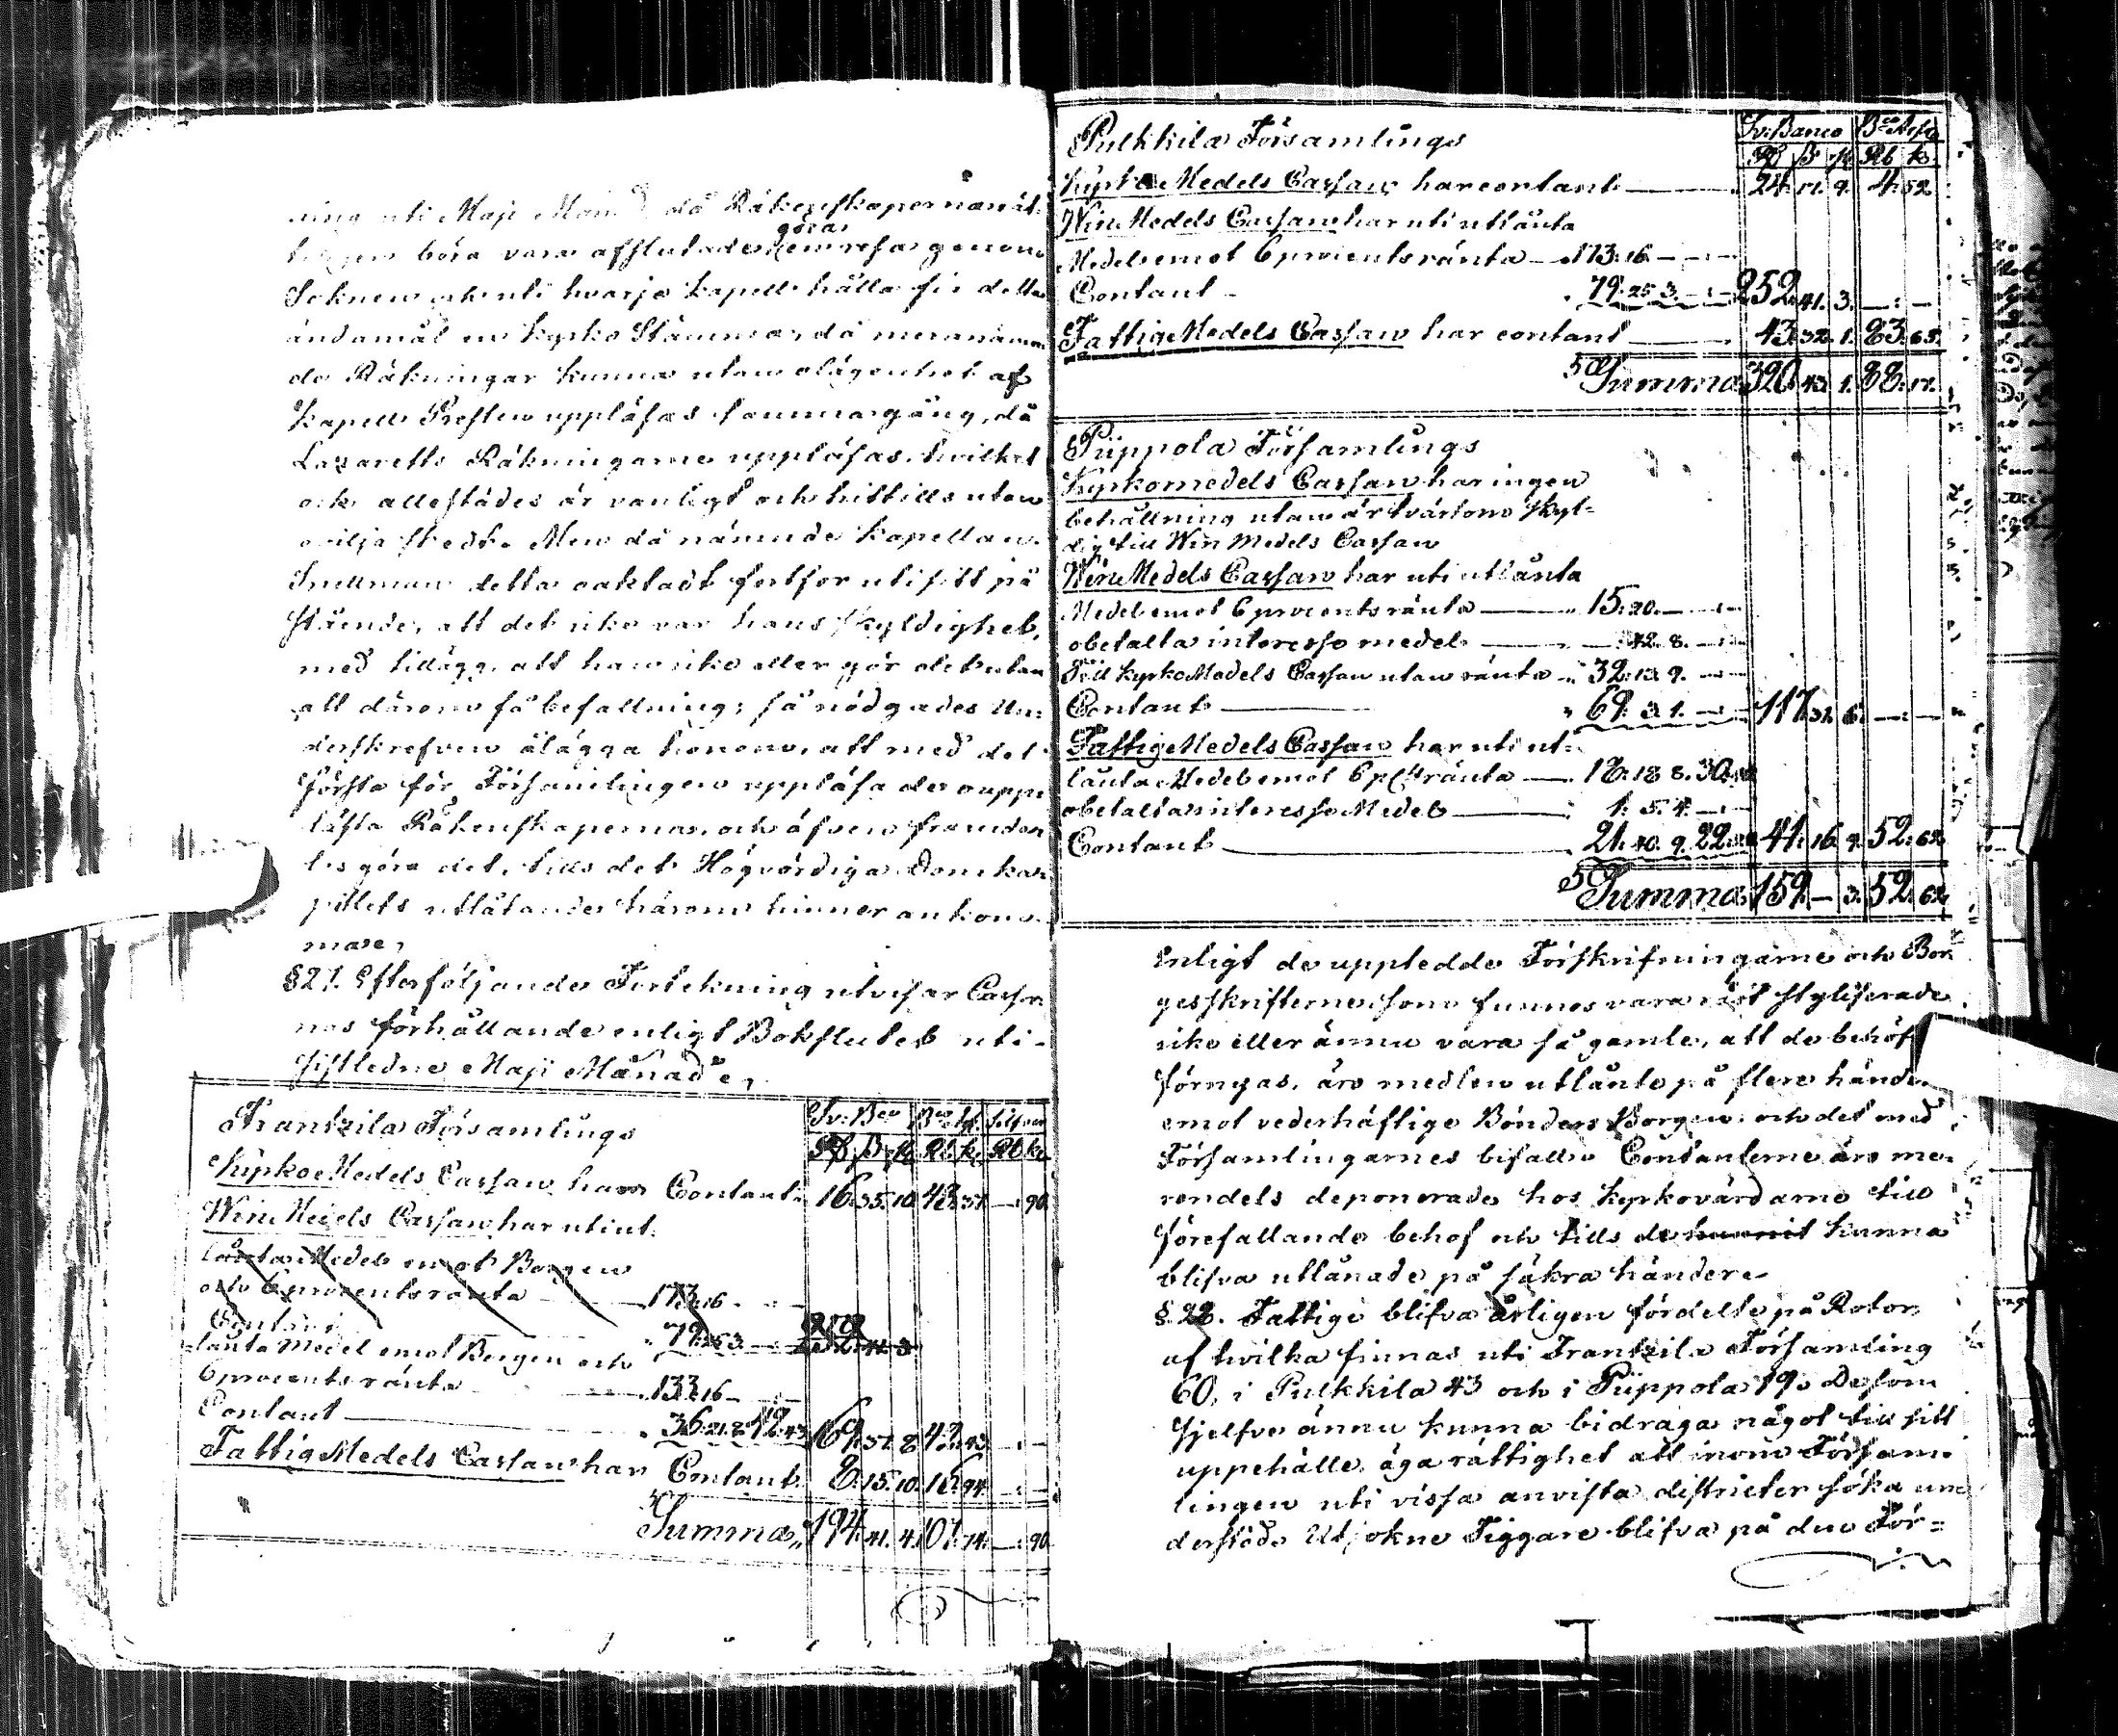 ning uti Maji Månad då Räkenskaperna
böra vara afslutade, göra en resa genom
Soknen och uti hvarje Kapell hålla för detta
ändamål en Kyrko Stämma, då mernämn-
de Räkningar kunna utan olägenhet af
Kapells Presten uppläsas samma gång, då
Lazaretts Räkningarne uppläsas, hvilket
ock allestädes är vanligt och hittills utan
ovilja skedt. Men då nämnde Kapellan
Snellman detta oaktadt fortfor uti sitt på
stående, att det icke var hans skyldighet,
med tillägg, att han icke eller gör det utan
att därom få befallning; så nödgades Un-
derskrefven ålägga honom, att med det
första för Församlingen uppläsa de oupp-
lästa Räkenskaperna, och äfven framde-
les göra det, tills det Högvördiga Domka-
pitlets utlåtande härom hinner ankom-
ma.
§ 21. Efterföljande Förtekning utvisar Casser-
nas förhållande enligt Bokslutet uti
sistledne Maji Månad.
Frantzila Församlings
Sv: Bco Bco Ass. Silfver
Rd ß rst Rb. k. Rb k.
Kyrko Medels Cassan har Contant 16. 35. 10. 42. 37. —. 90.
Win Medels Cassan har uti ut-
lånta Medel emot Borgen
och 6 procents ränta 173. 16.
Contant 79. 25. 3. 252. 41. 3.
lånta Medel emot Borgen och
6 procents ränta 133. 16
Contant 36. 21. 8. 42. 43. 169. 37. 8. 42. 43.
Fattig Medels Cassan har Contant 8. 15. 10. 16. 94.
Summa 194. 41. 4. 101. 74. —. 90.
Pulkkila Församlings
Sv: Banco Bco Assg.
Rd ß rst Rb k.
Kyrko Medels Cassan har contant 24. 17. 9. 4. 52
Win Medels Cassan har uti utlånta
Medel emot 6 procents ränta 173. 16.
Contant 79. 25. 3. 252. 41. 3.
Fattig Medels Cassan har contant 43. 32. 1. 83. 65.
Summa 320. 43. 1. 88. 17.
Piippola Församlings
Kyrkomedels Cassan har ingen
behållning utan är tvärtom skyl-
dig till Win Medels Cassan
Win Medels Cassan har uti utlånta
Medel emot 6 procents ränta 15. 20.
obetalta interesse medel 42. 8.
Till Kyrko Medels Cassan utan ränta 32. 13. 9.
Contant 69. 3. 1. 117. 31. 6.
Fattig Medels Cassan har uti ut-
lånta Medel emot 6 pCt ränta 18. 18. 8. 30.
obetalta interesse Medel 1. 5. 4.
Contant 21. 40. 9. 22. 41. 16. 9. 52. 62
Summa 159. — 3. 52. 62
Enligt de uppledde Förskrifningarne och Bor-
gesskrifterne, som funnos vara rätt styliserade
icke eller ännu vara så gamle, att de behöf
förnyas, äro medlen utlånte på flere händer
emot vederhäftige Bönders Borgen, och det med
Församlingarnes bifall. Contanterne äro me-
rendels deponerade hos Kyrkovärdarne till
förefallande behof och tills de hunnit kunna
blifva utlånade på säkra händer.
§ 22. Fattige blifva årligen fördelte på Rotor,
af hvilka finnas uti Frantzila Församling
60, i Pulkkila 43 och i Piippola 19. De som
sjelfve ännu kunna bidraga något till sitt
uppehälle, äga rättighet att inom Försam-
lingen uti vissa anvista districter söka un-
derstöd. Utsokne Tiggare blifva på den För-